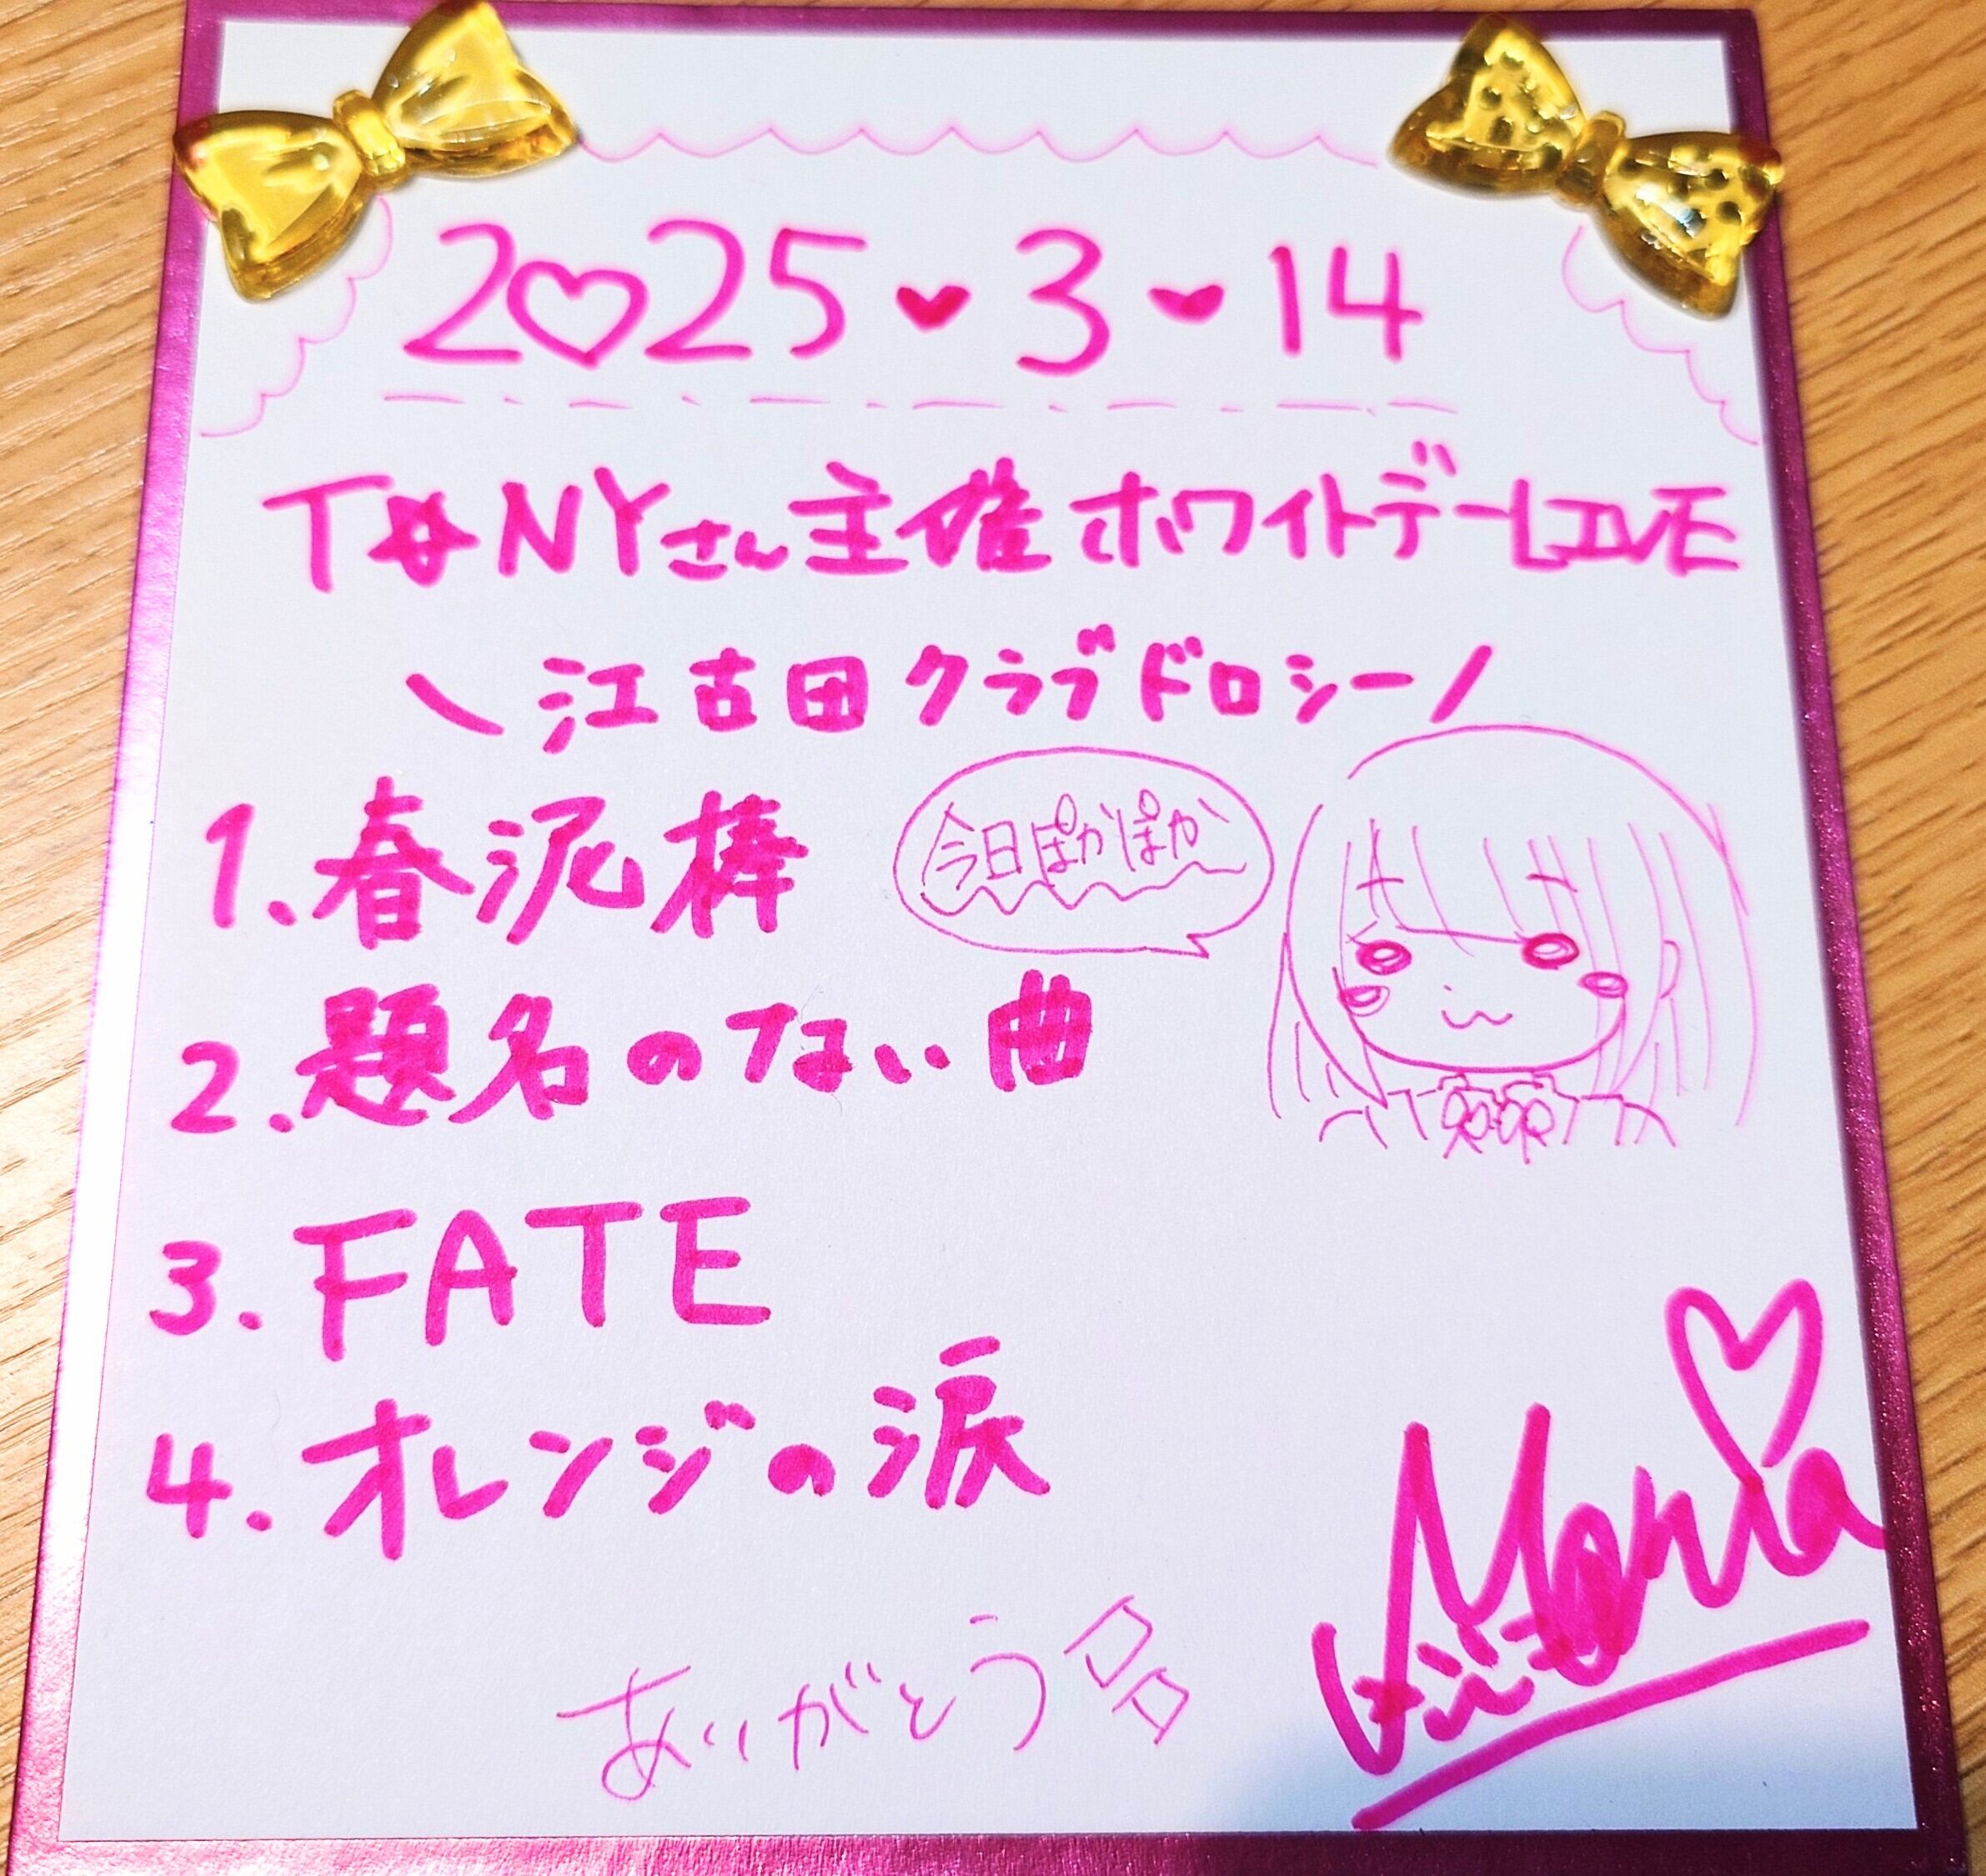 2♡25♥3♥14
T☆NYさん主催ホワイトデーLIVE
\ 江古田クラブドロシー /
1.春泥棒
今日ぽかぽか
2.題名のない曲
3.FATE
4.オレンジの涙
Maria
ありがとう